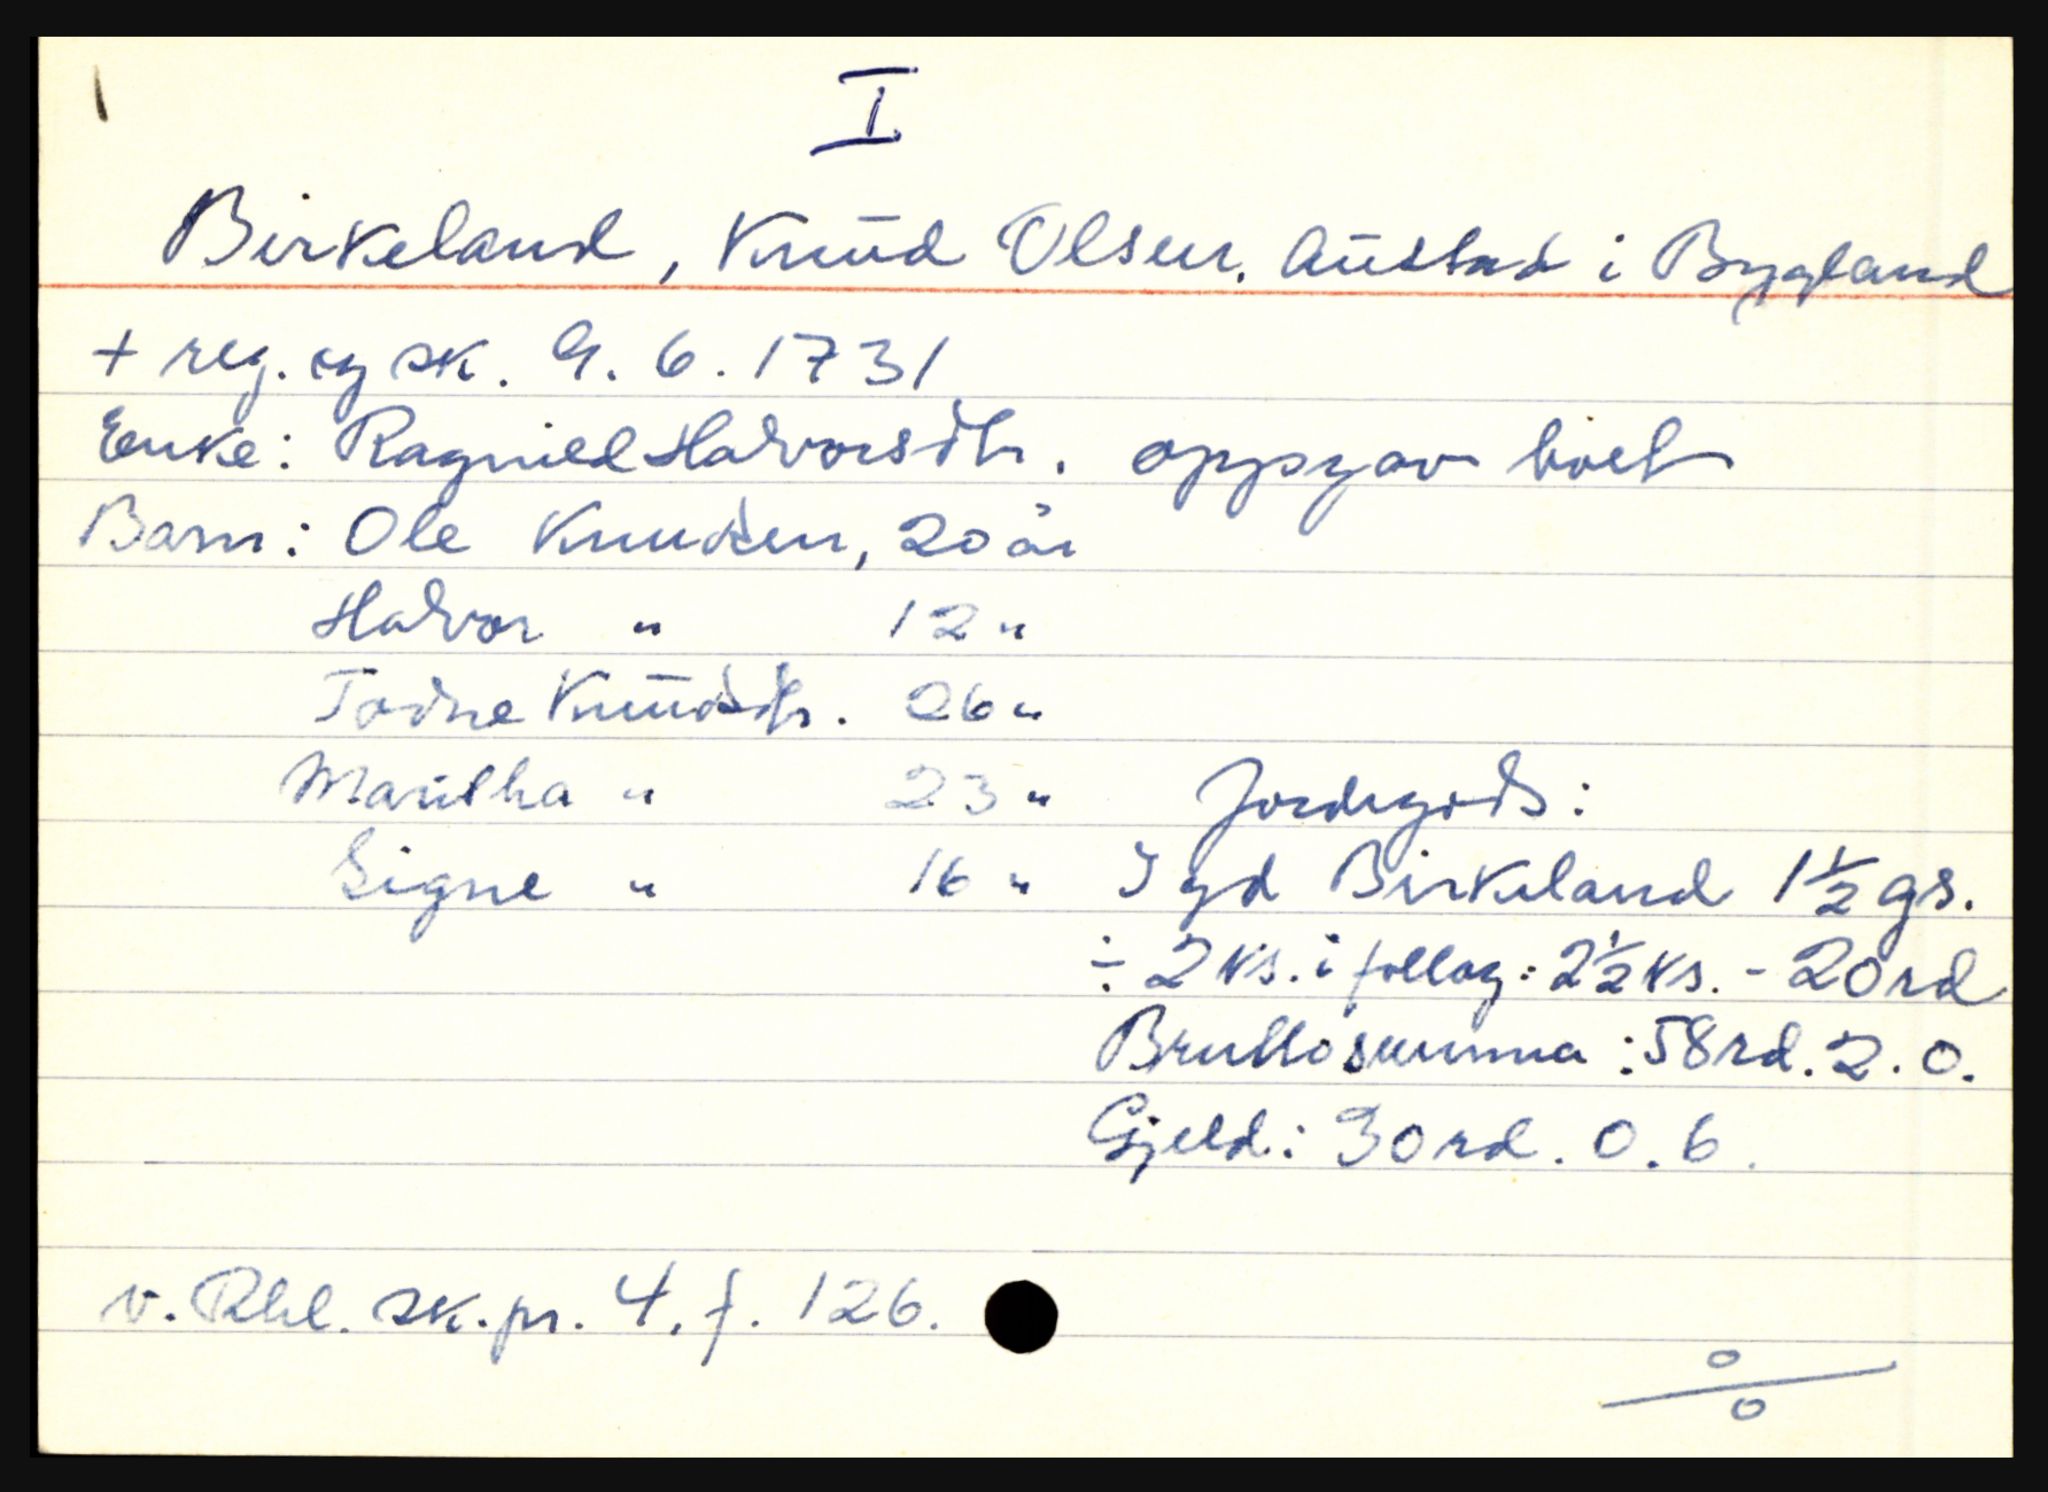 I
Birkeland, Knud Olsen. Austad i Bygland
+ reg. og sk. 9. 6. 1731
Enke: Ragnild Halvorsdtr. oppgav boet
Barn: Ole Knudsen, 20 år
Halvor " 12 "
Todne Knudsdtr. 26 "
Maritha " 23 " Jordegods:
Signe " 16 " I gd Birkeland 1½ gs.
÷ 2 ks. i follog: 2½ ks. - 20 rd
Bruttosumma: 58 rd. 2. 0.
Gjeld: 30 rd. 0. 6.
v. Rbl. sk. pr. 4. f. 126.